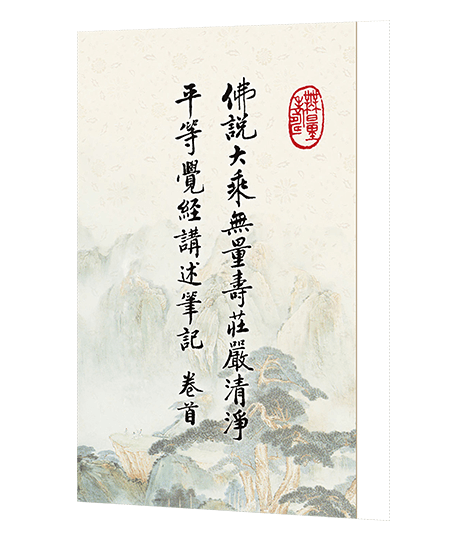 佛說大乘無量壽莊嚴清淨
平等覺經講述筆記 卷首